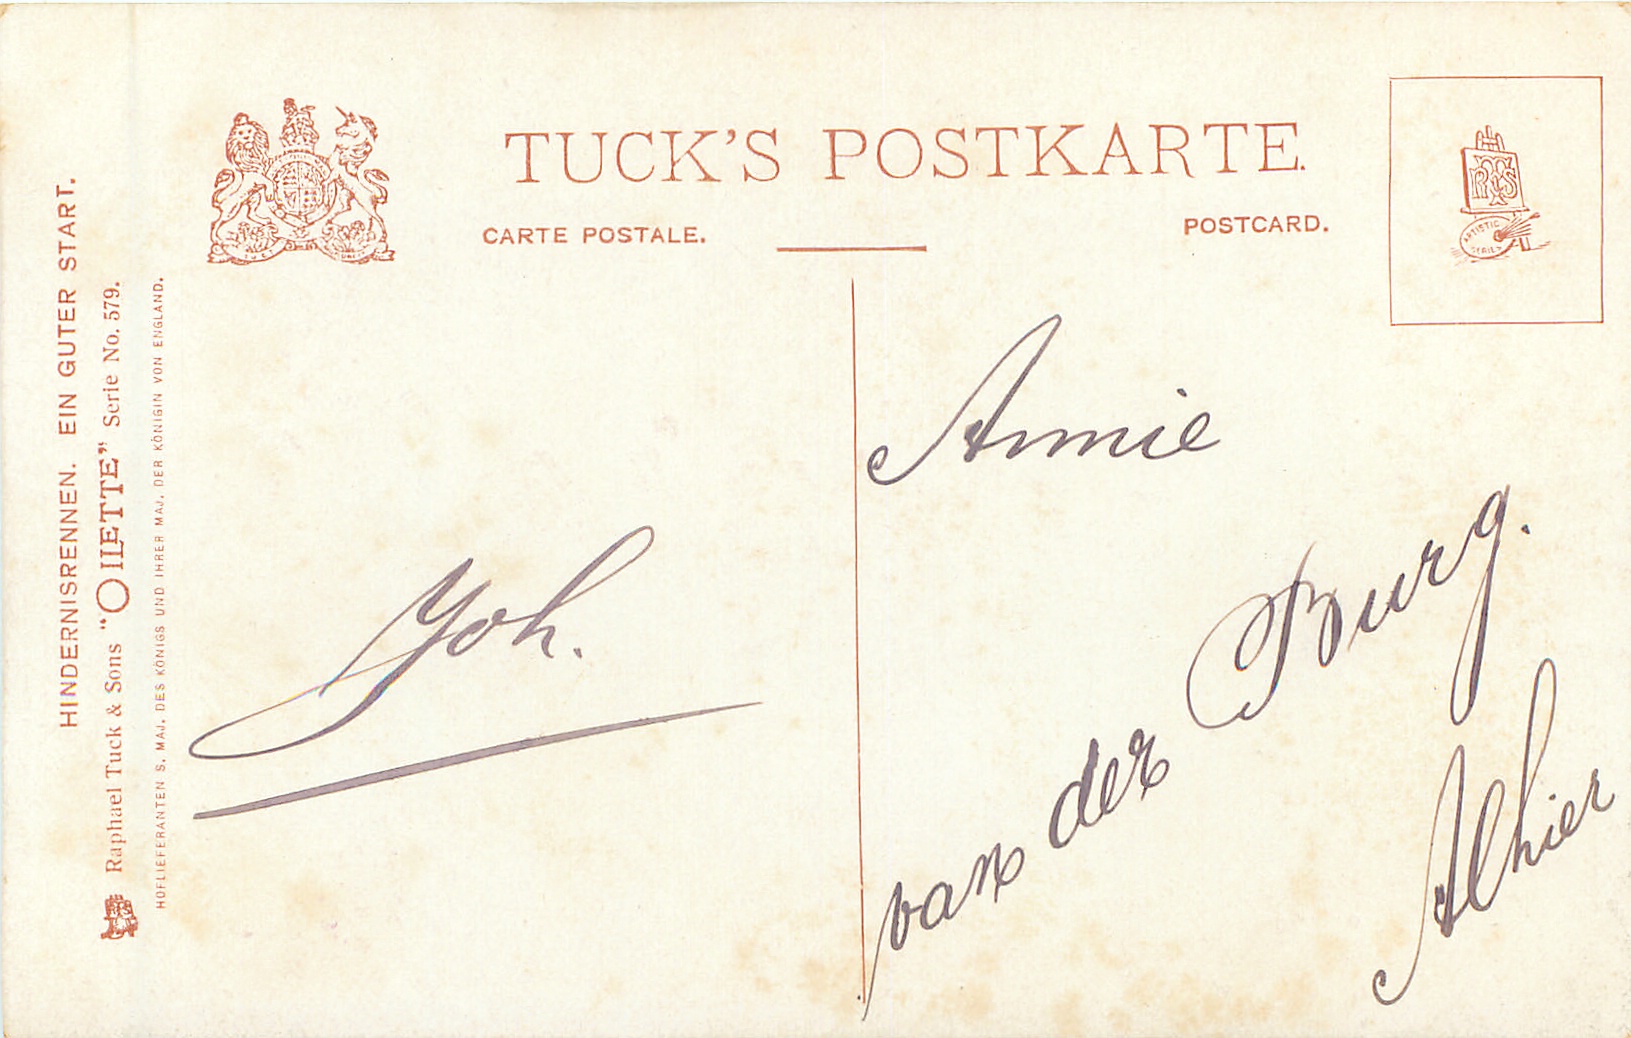 TUCK'S POSTKARTE.
CARTE POSTALE.
POSTCARD.
RTS
ARTISTIC
SERIES
HINDERNISRENNEN. EIN GUTER START.
Raphael Tuck & Sons "OILETTE" Serie No. 579.
HOFLIEFERANTEN S. MAJ. DES KÖNIGS UND IHRER MAJ. DER KÖNIGIN VON ENGLAND.
Joh.
Annie
van der Burg.
Alhier